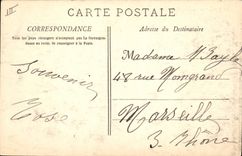 CARTE POSTALE
CORRESPONDANCE
Tous les pays étrangers n'acceptent pas la Correspondance au recto, se renseigner à la Poste.
Adresse du Destinataire
Souvenir
Rose
Madame
48 rue Montgrand
Marseille
B. Rhône